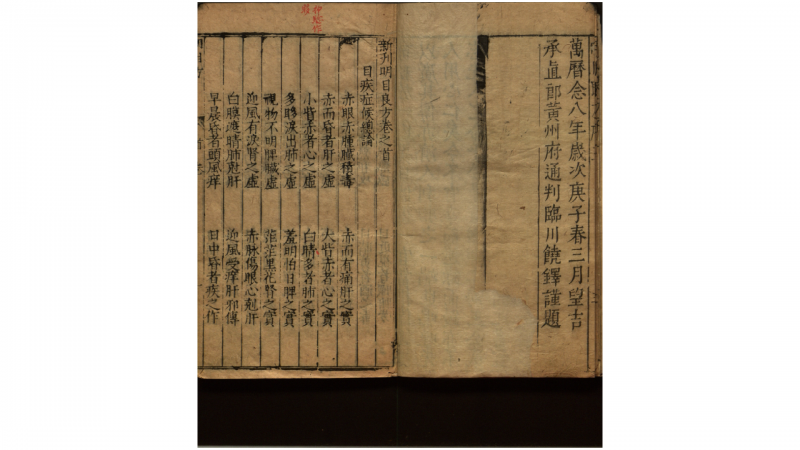 萬曆念八年歲次庚子春三月望吉
承直郎黃州府通判臨川饒鐸謹題
新刊明目良方卷之首
目疾症候總論
赤眼赤腫臟積毒 赤而有痛肝之實
赤而昏者肝之虛 大眥赤者心之實
小眥赤者心之虛 白睛多者肺之實
多眵淚出肺之虛 羞明怕日脾之實
視物不明脾臟虛 茫茫黑花腎之實
迎風有淚腎之虛 赤脉傷眼心剋肝
白膜遮睛肺剋肝 迎風受痒肝邪傳
早晨昏者頭風痒 日中昏者疾之作